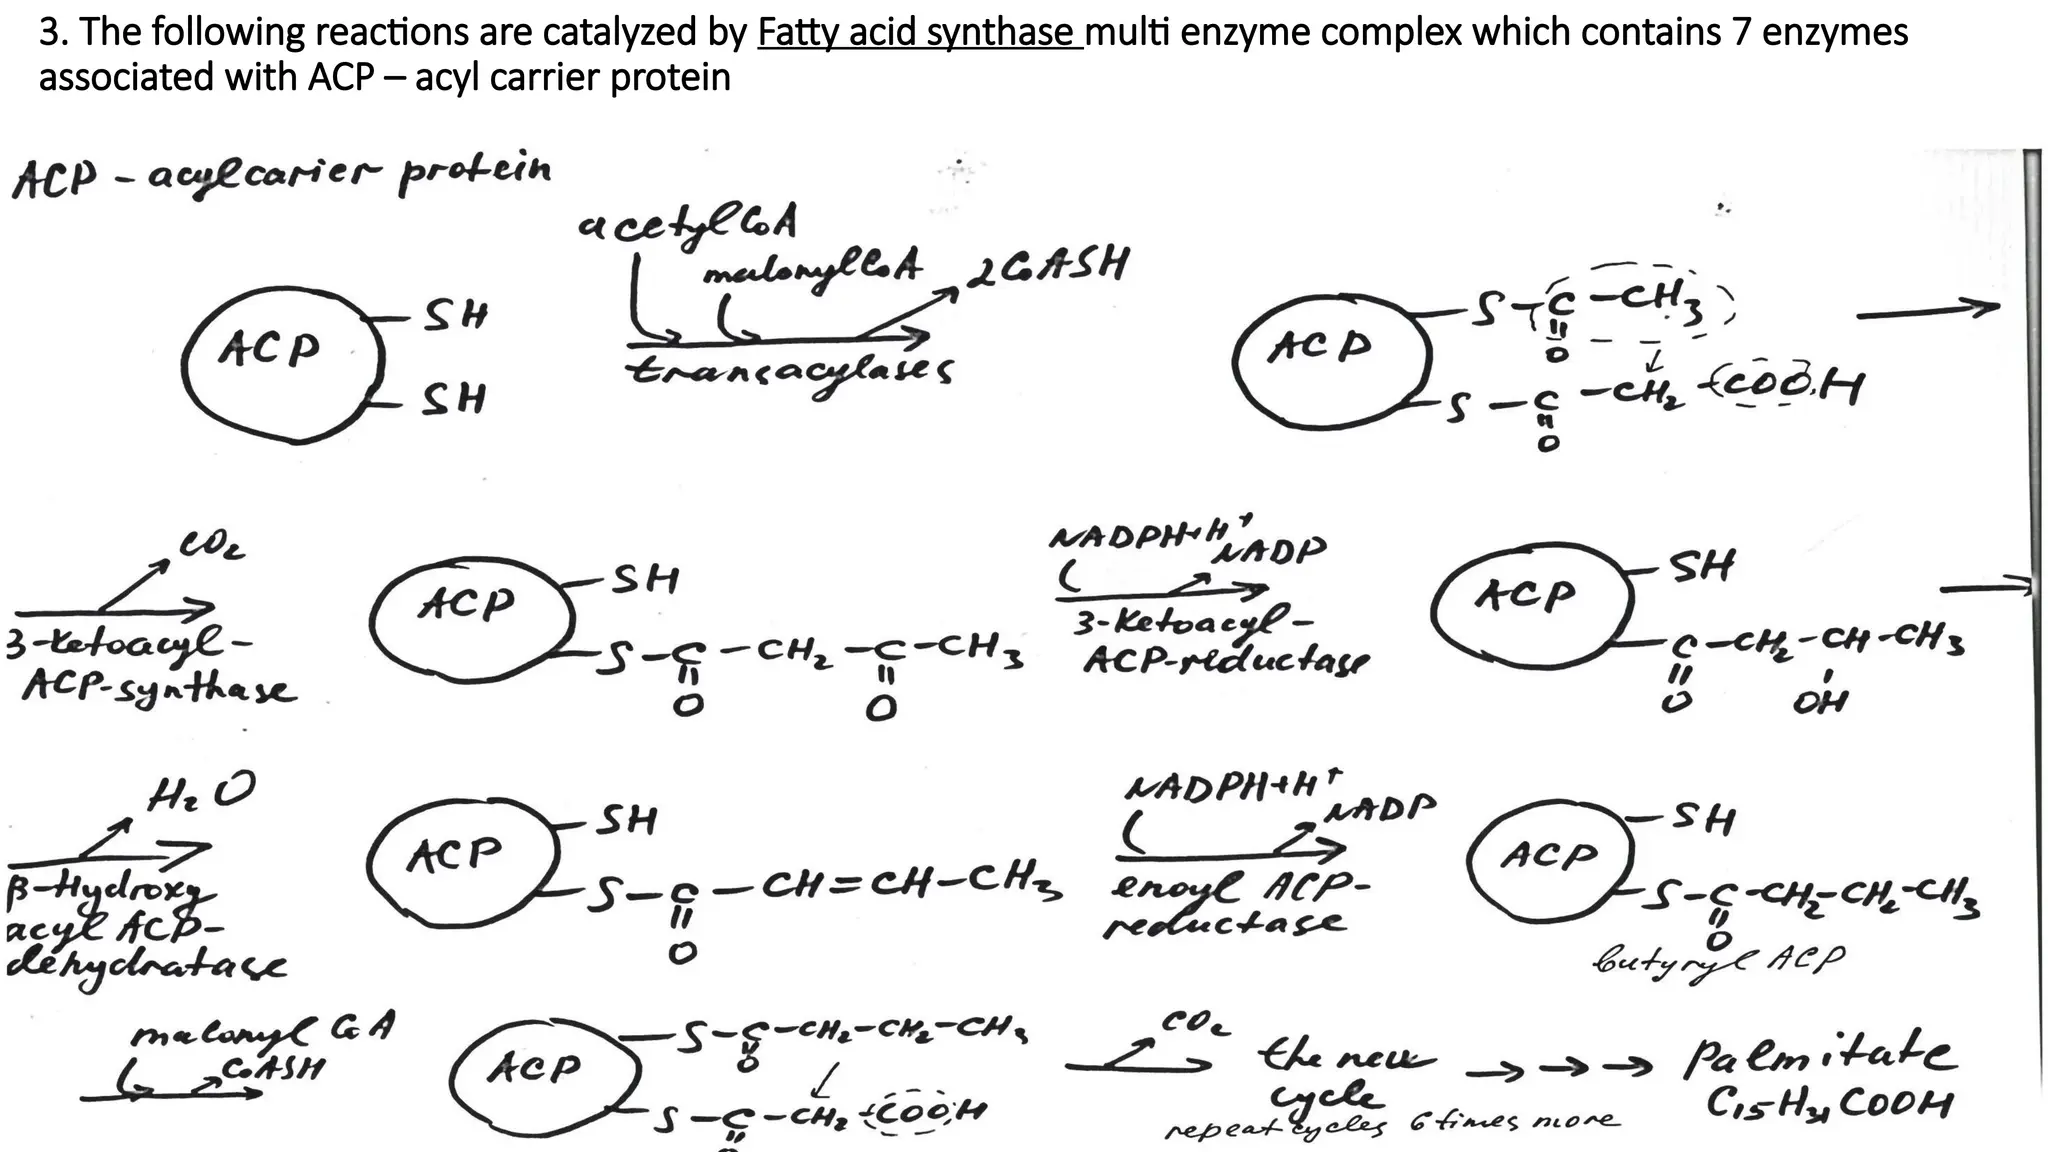 3. The following reactions are catalyzed by Fatty acid synthase multi enzyme complex which contains 7 enzymes
associated with ACP – acyl carrier protein
ACP - acylcarier protein
acetylCoA
malonylCoA
2CoASH
ACP
SH
SH
transacylases
ACP
S-C-CH3
O
S-C-CH2-COOH
O
CO2
3-Ketoacyl-
ACP-synthase
ACP
SH
S-C-CH2-C-CH3
O O
NADPH+H+
NADP
3-Ketoacyl-
ACP-reductase
ACP
SH
C-CH2-CH-CH3
O OH
H2O
β-Hydroxy
acyl ACP-
dehydratase
ACP
SH
S-C-CH=CH-CH3
O
NADPH+H+
NADP
enoyl ACP-
reductase
ACP
SH
S-C-CH2-CH2-CH3
O
butyryl ACP
malonyl CoA
CoASH
ACP
S-C-CH2-CH2-CH3
O
S-C-CH2-COOH
CO2
the new
cycle
repeat cycles 6 times more
Palmitate
C15H31COOH